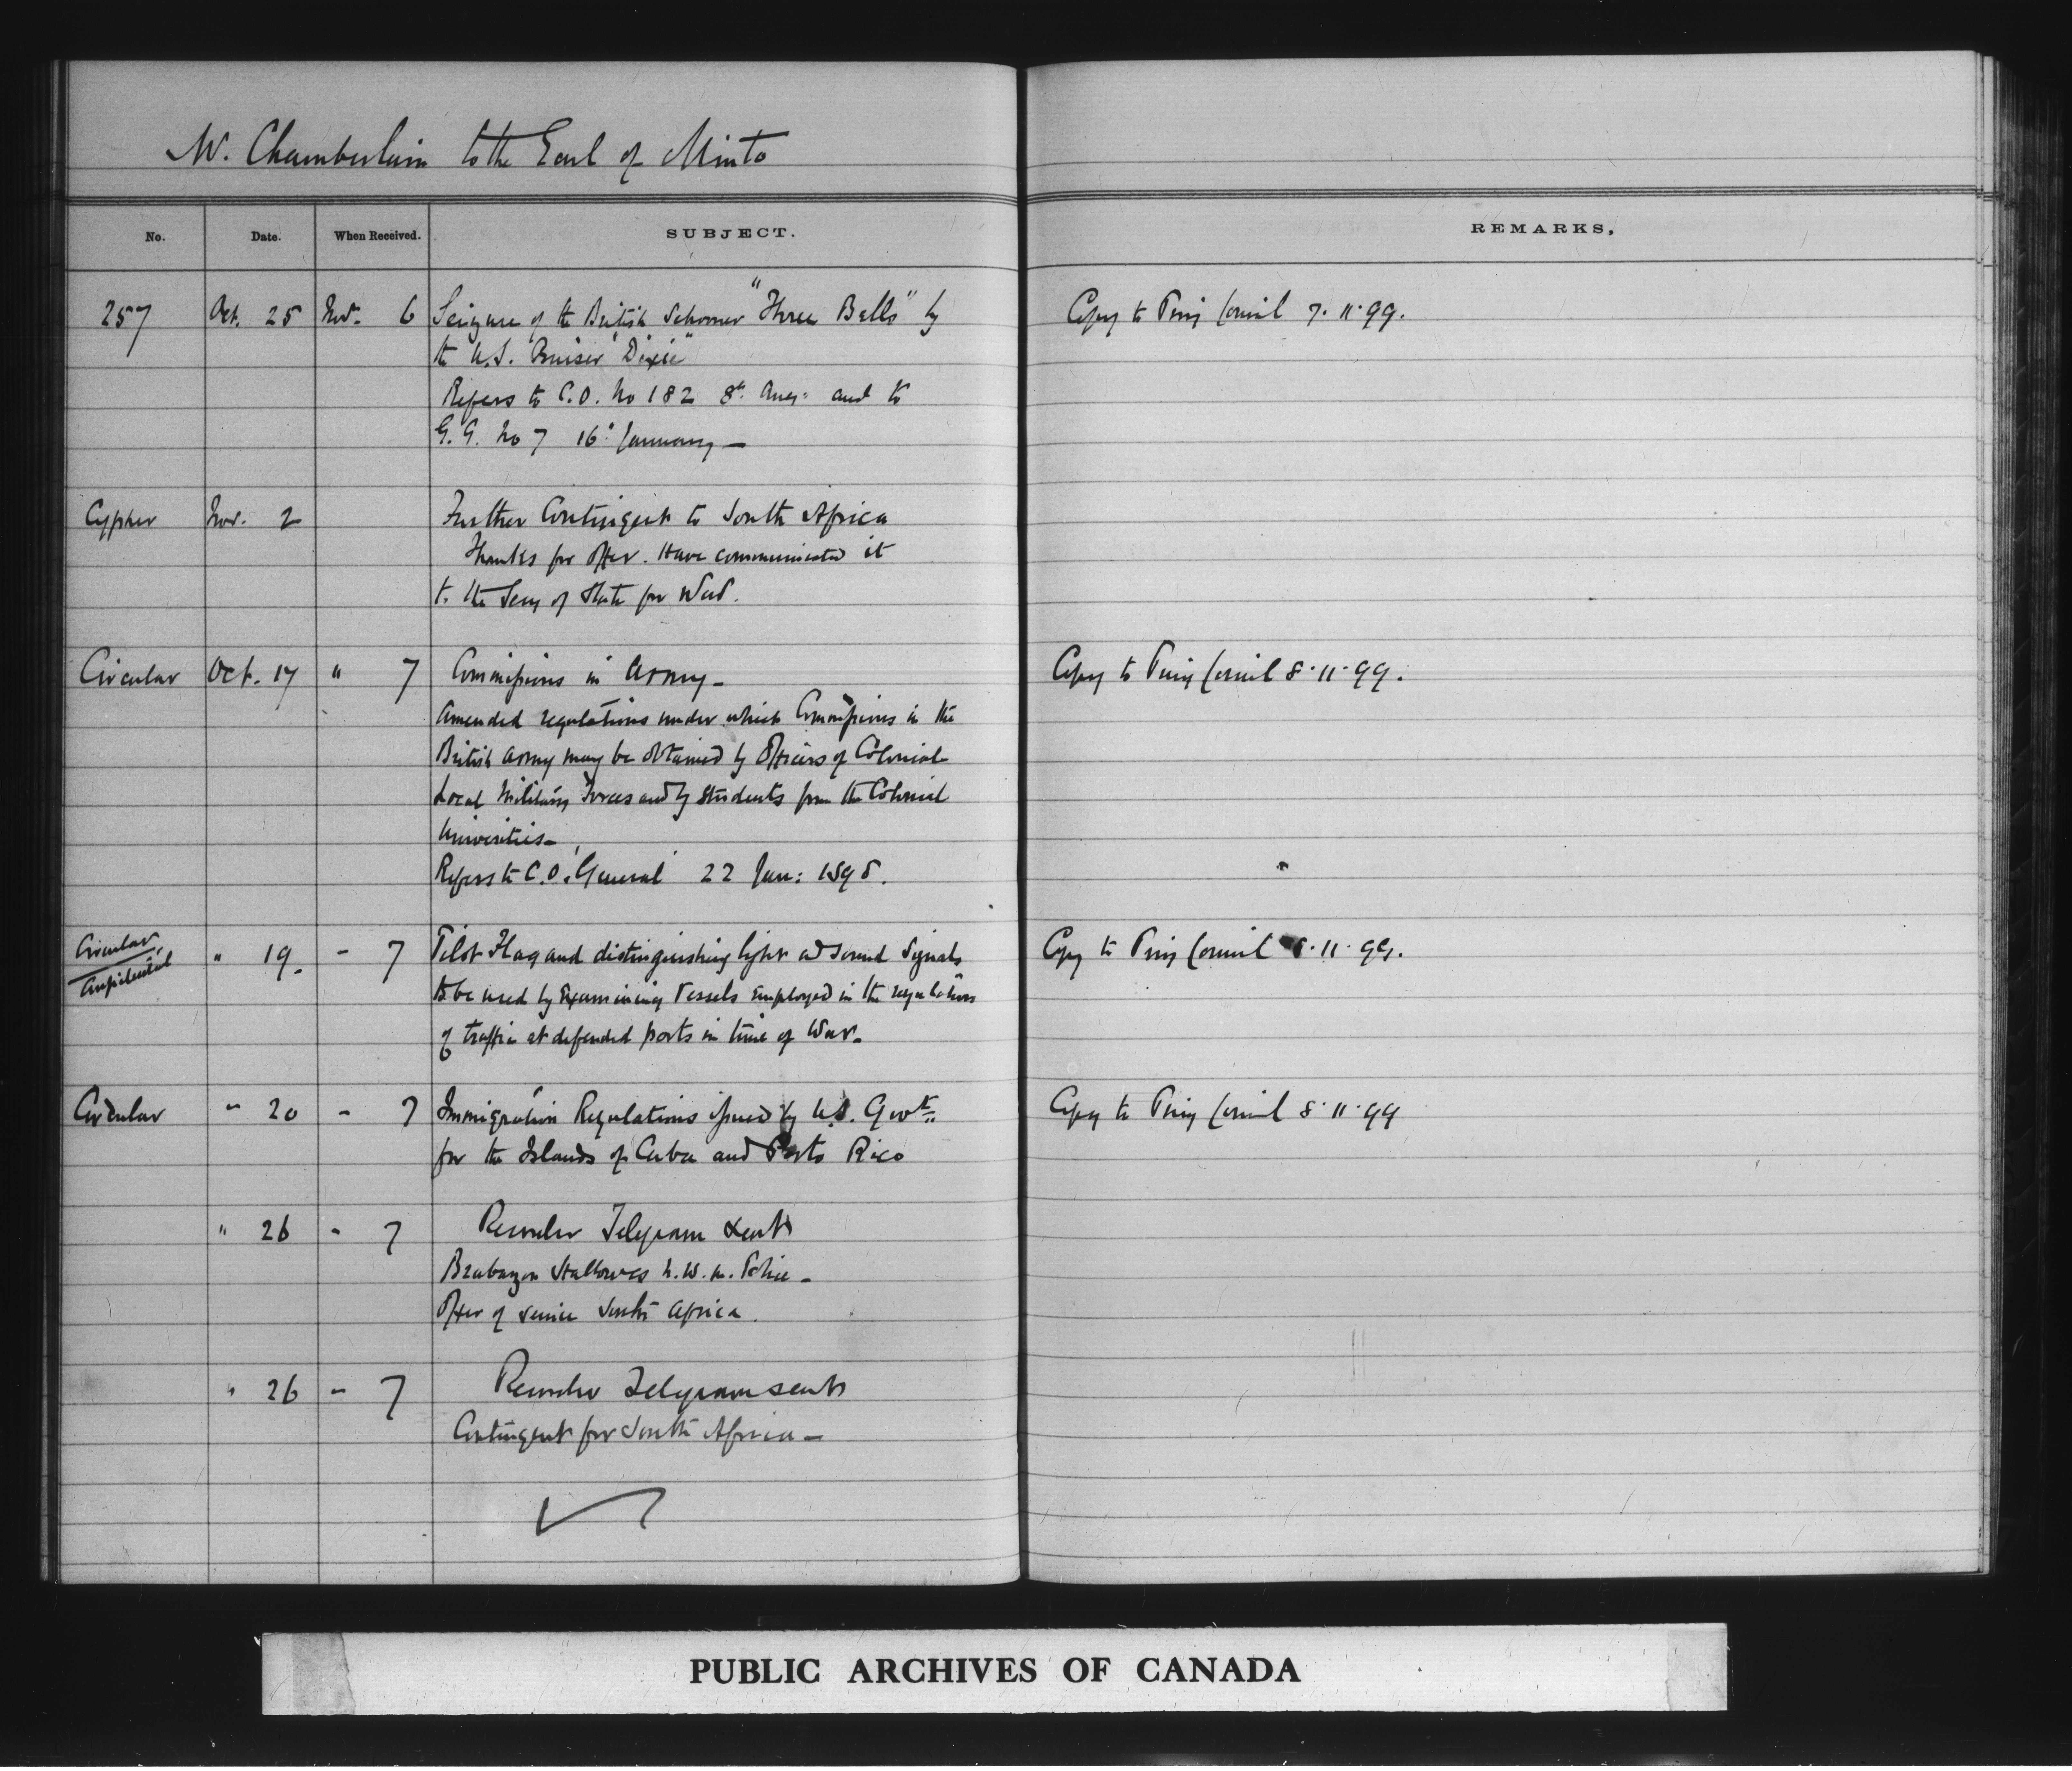 Mr. Chamberlain to the Earl of Minto
No. Date. When Received. SUBJECT. REMARKS.
257 Oct. 25 Nov. 6 Seizure of the British Schooner "Three Bells" by Copy to Privy Council 7.11.99.
the U.S. Cruiser "Dixie"
Refers to C.O. No 182 8th Aug: and to
G.G. No 7 16: January —
Cypher Nov. 2 Further Contingent to South Africa
Thanks for offer. Have communicated it
to the Secy of State for War.
Circular Oct. 17 " 7 Commissions in Army — Copy to Privy Council 8.11.99.
Amended regulations under which Commissions in the
British Army may be obtained by Officers of Colonial
Local Military Forces and by Students from the Colonial
Universities —
Refers to C.O. General 22 Jan: 1898.
Circular, Confidential " 19. - 7 Pilot Flag and distinguishing light and Sound Signals Copy to Privy Council 8.11.99.
to be used by Examining Vessels employed in the regulation
of traffic at defended ports in time of War.
Circular " 20 - 7 Immigration Regulations issued by U.S. Govt. Copy to Privy Council 8.11.99
for the Islands of Cuba and Porto Rico
" 26 - 7 Recorder Telegram sent
Brabazon Hallowes N.W.M. Police —
Offer of service South Africa.
" 26 - 7 Recorder Telegram sent
Contingent for South Africa —
PUBLIC ARCHIVES OF CANADA